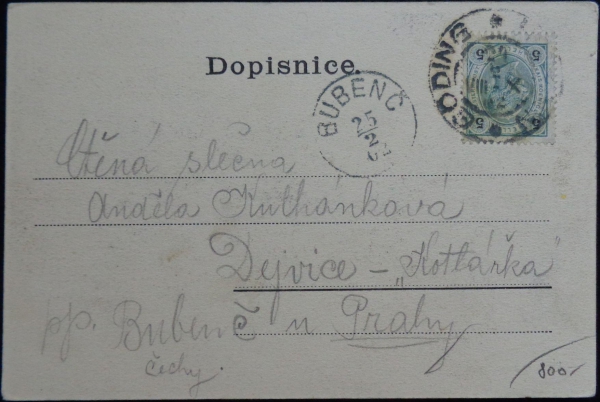 Dopisnice.
GÖDING
5 5
BUBENČ
Ctěná slečna
Anděla Kuthánková
Dejvice – „Kotlářka"
pp. Bubenč u Prahy
Čechy.
800,-